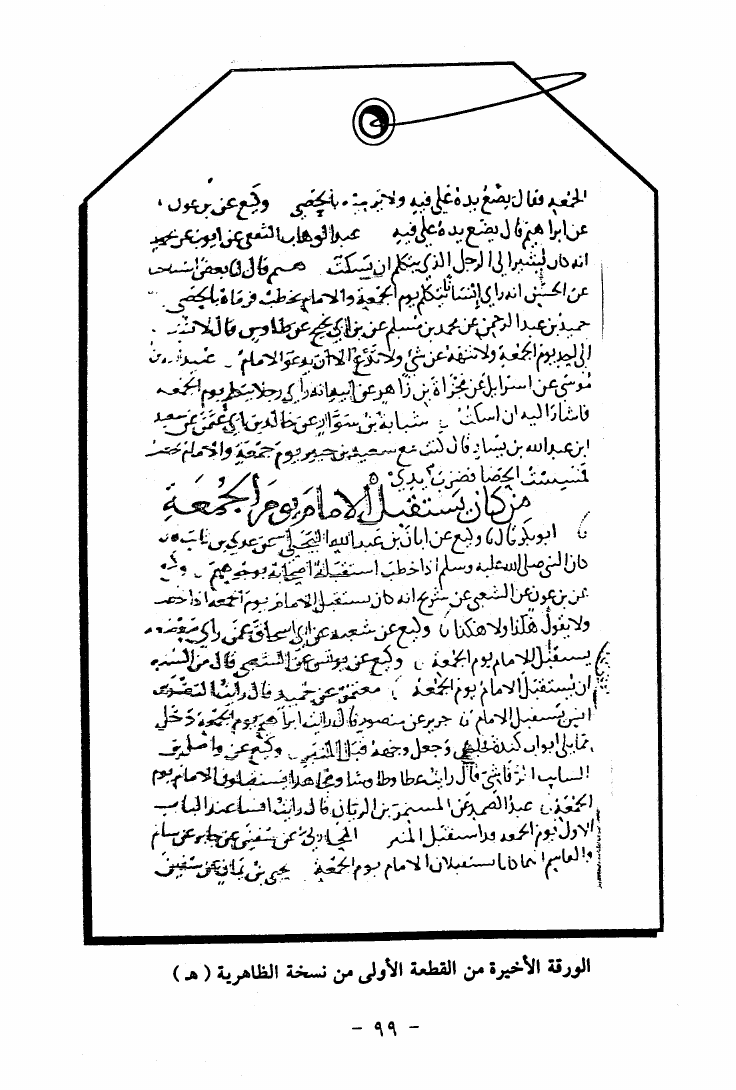 الجمعه فقال يضع يده على فيه ولا يرميه بالحصى وكيع عن بن عون
عن ابراهيم قال يضع يده على فيه عبد الوهاب الثقفي عن ايوب عن محمد
انه كان يشير الى الرجل الذي يتكلم ان يسكت هشيم قال انا بعض
عن الحسن انه راى انسانا يتكلم يوم الجمعة والامام يخطب فرماه بالحصى
حميد بن عبد الرحمن عن محمد بن مسلم عن بن ابي نجيح عن طاوس قال لا تشر
الى احد يوم الجمعة ولا تنهه عن شي ولا تدع الا ان يدعو الامام عبيد الله بن
موسى عن اسرايل عن مجزاة بن زاهر عن ابيه انه راى رجلا يتكلم يوم الجمعه
فاشار اليه ان اسكت شبابة بن سوار عن خالد بن ابي عثمن عن سعيد
ابن عبد الله بن يسار قال كنت مع سعيد بن جبير يوم جمعة والامام يخطب
فمسست الحصا فضرب يدي
من كان يستقبل الامام يوم الجمعة
ابو بكر قال وكيع عن ابان بن عبد الله البجلي عن عدي بن ثابت
كان النبي صلى الله عليه وسلم اذا خطب استقبله اصحابه بوجوههم وكيع
عن بن عون عن الشعبي عن شريح انه كان يستقبل الامام يوم الجمعة اذا خطب
ولا يقول هكذا ولا هكذا وكيع عن شعبه عن ابي اسحاق عمن راى
يستقبل الامام يوم الجمعة وكيع عن يونس عن الشعبي قال من السنه
ان يستقبل الامام يوم الجمعة معتمر عن حميد قال رايت
انس يستقبل الامام جرير عن منصور قال رايت ابراهيم يوم الجمعة دخل
مما يلي ابواب كندة فجلس وجعل وجهه قبل المنبر وكيع عن واصل بن
السايب الرقاشي قال رايت عطا وطاوسا ومجاهدا يستقبلون الامام يوم
الجمعة عبد الصمد عن المستمر بن الريان قال رايت انسا عند الباب
الاول يوم الجمعه قد استقبل المنبر المحاربي عن سفين عن جابر عن سالم
والقاسم انهما كانا يستقبلان الامام يوم الجمعة يحيى بن يمان عن سفين
الورقة الأخيرة من القطعة الأولى من نسخة الظاهرية ( هـ )
- ٩٩ -